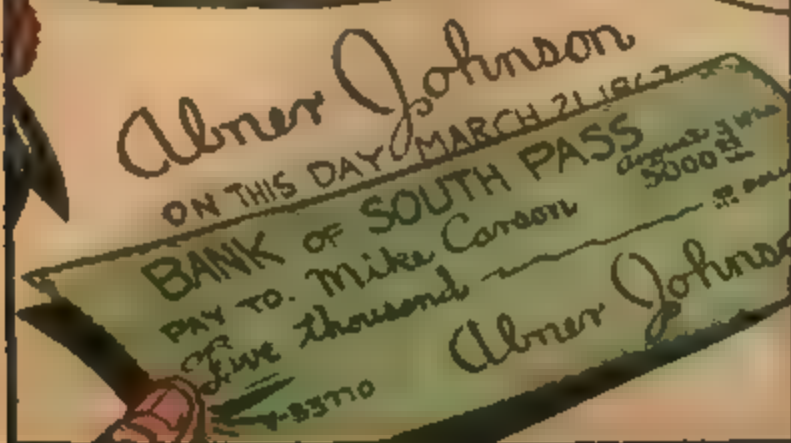 Abner Johnson
ON THIS DAY MARCH 21, 1867
BANK OF SOUTH PASS
5000
PAY TO. Mike Carson
Five thousand
Abner Johnso